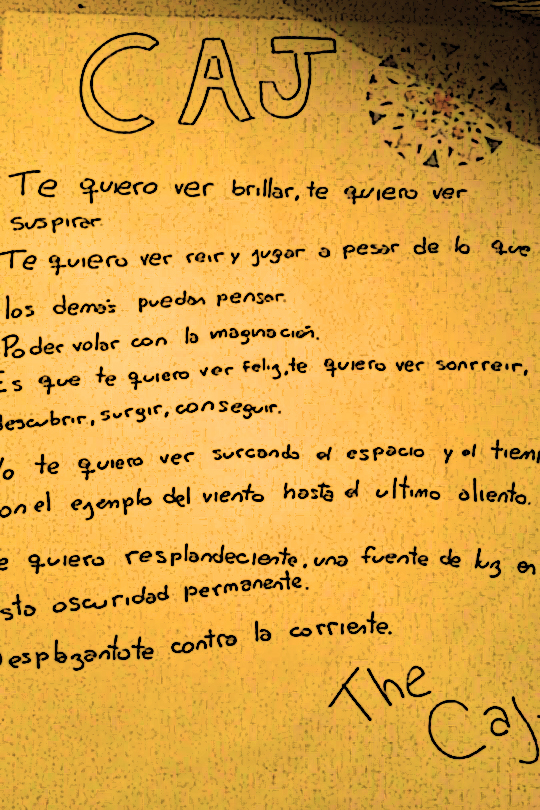 CAJ
Te quiero ver brillar, te quiero ver
suspirar.
Te quiero ver reir y jugar a pesar de lo que
los demas puedan pensar.
Poder volar con la maginación.
Es que te quiero ver feliz, te quiero ver sonrreir,
descubrir, surgir, conseguir.
Yo te quiero ver surcando el espacio y el tiemp
on el ejemplo del viento hasta el ultimo aliento.
e quiero resplandeciente, una fuente de luz en
sta oscuridad permanente.
Desplazantote contra la corriente.
The
Caj